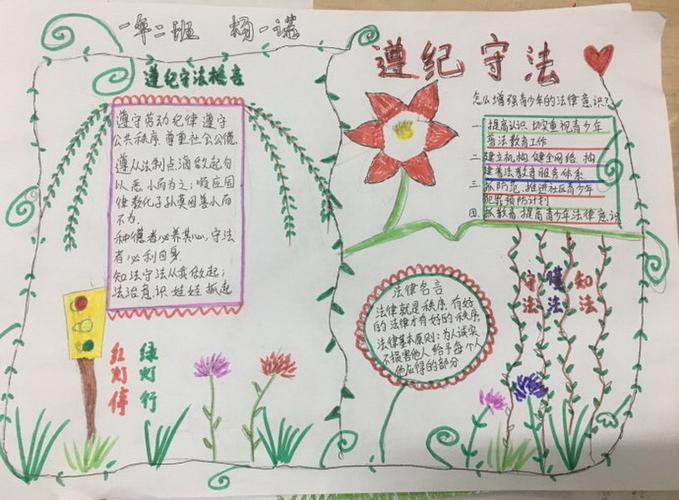 一年二班 杨一诺
遵纪守法格言
遵守劳动纪律 遵守
公共秩序 尊重社会公德
遵从法制点滴做起勿
以恶小而为之；顺应国
律教化子孙莫因善小而
不为.
种德者必养其心，守法
有必利因身
知法守法从我做起；
法治意识 娃娃抓起
红灯停
绿灯行
遵纪守法
怎么增强青少年的法律意识？
一 提高认识 切实重视青少年
普法教育工作
二 建立机构 健全网络 构
建普法教育服务体系
三 抓防范，推进社区青少年
犯罪预防计划
四 抓教育 提高青少年法律意识
守法
懂法
知法
法律名言
法律就是秩序 有好
的法律才有好的秩序
法律基本原则：为人诚实
不损害他人 给予每个人
他应得的部分